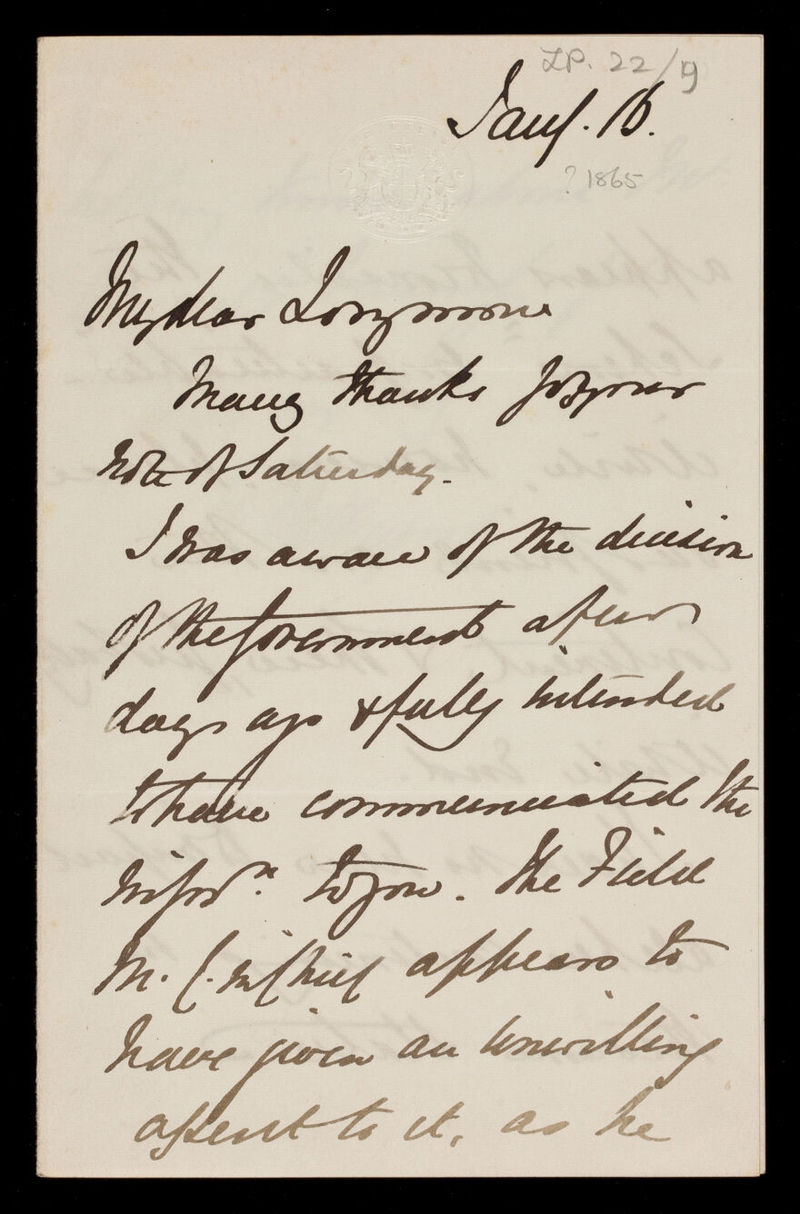 LP. 22/9
Jany. 16.
? 1865
My dear Longmore
Many thanks for your
note of Saturday.
I was aware of the decision
of the Government a few
days ago & fully intended
to have communicated the
infor.n to you. The Field
M. C. in Chief appears to
have given an unwilling
assent to it, as he